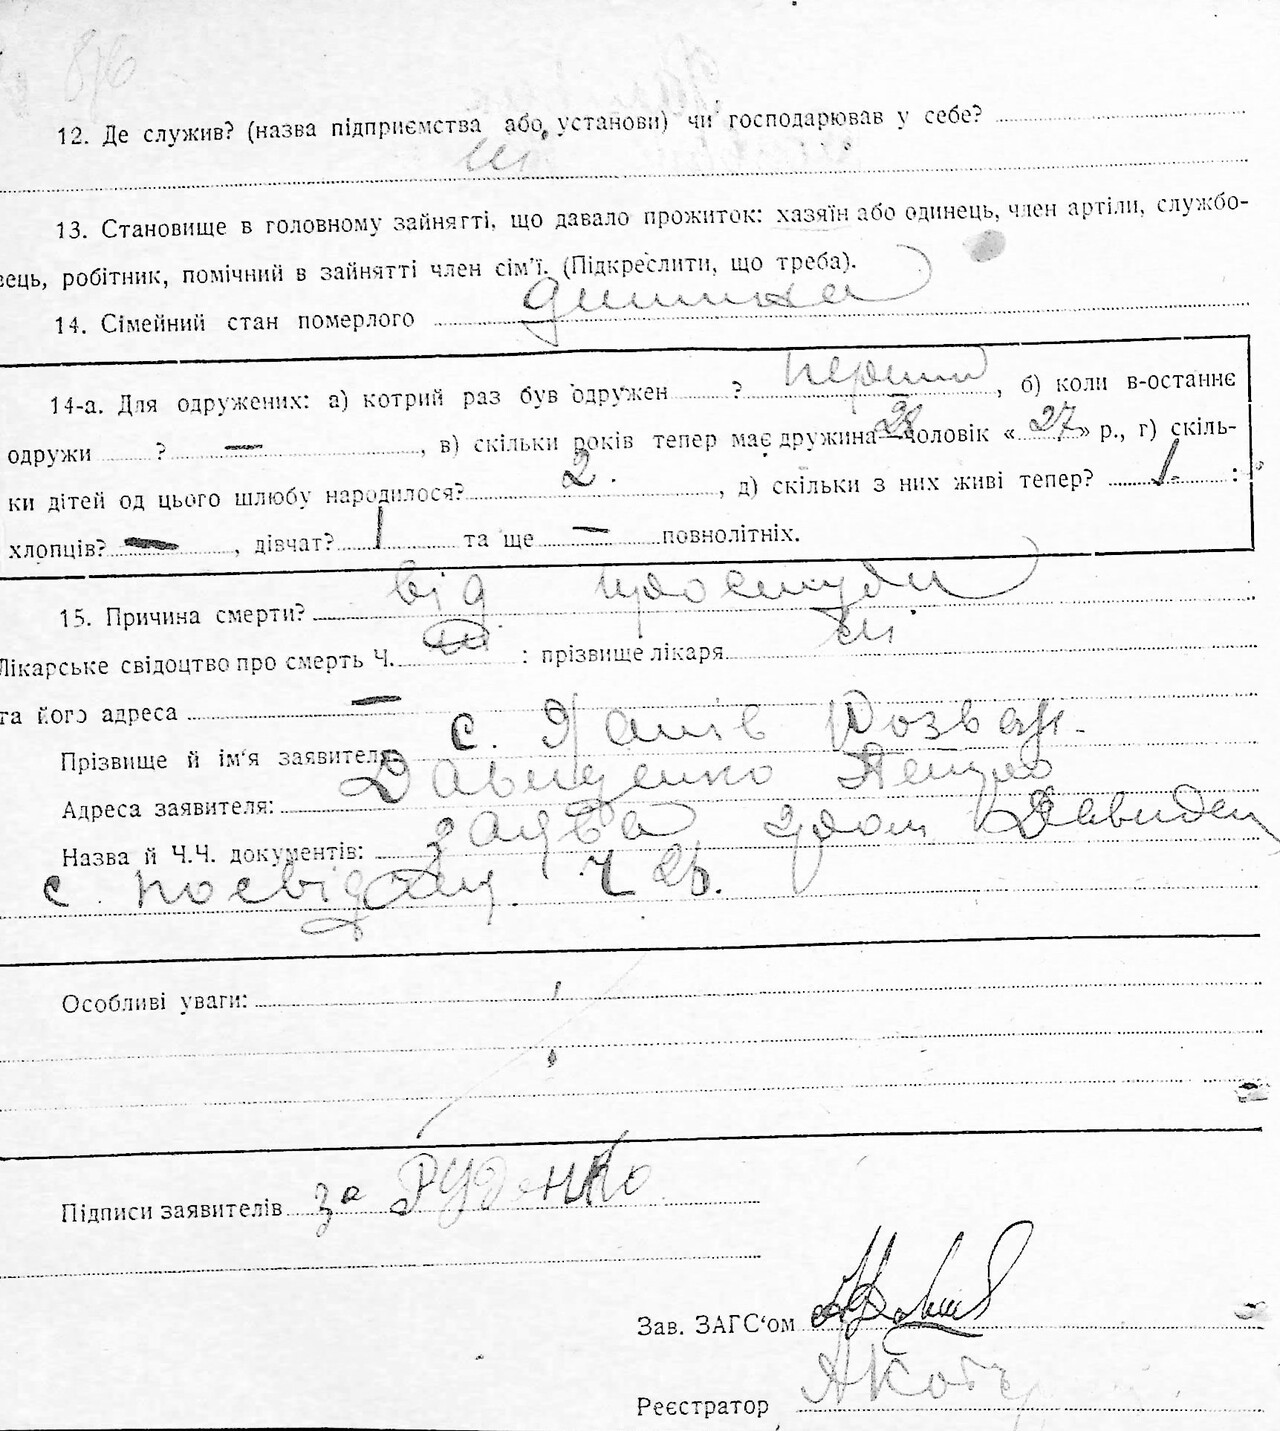 12. Де служив? (назва підприємства або установи) чи господарював у себе?
ні
13. Становище в головному зайнятті, що давало прожиток: хазяїн або одинець, член артіли, службо-
вець, робітник, помічний в зайнятті член сім'ї. (Підкреслити, що треба).
14. Сімейний стан померлого дитина
14-а. Для одружених: а) котрий раз був одружен ? перший, б) коли в-останнє
одружи ? —, в) скільки років тепер має дружина 28 чоловік «27» р., г) скіль-
ки дітей од цього шлюбу народилося? 2. , д) скільки з них живі тепер? 1. :
хлопців? — , дівчат? 1 та ще — повнолітніх.
15. Причина смерти? від простуди
Лікарське свідоцтво про смерть Ч. ні : прізвище лікаря ні
та його адреса —
Прізвище й ім'я заявителя с. Янів Розваж.
Адреса заявителя: Давиденко Петро
Назва й Ч.Ч. документів: заява гром Давиден
с посвідч. Ч 26.
Особливі уваги:
Підписи заявителів за Руденко
Зав. ЗАГС'ом
Реєстратор